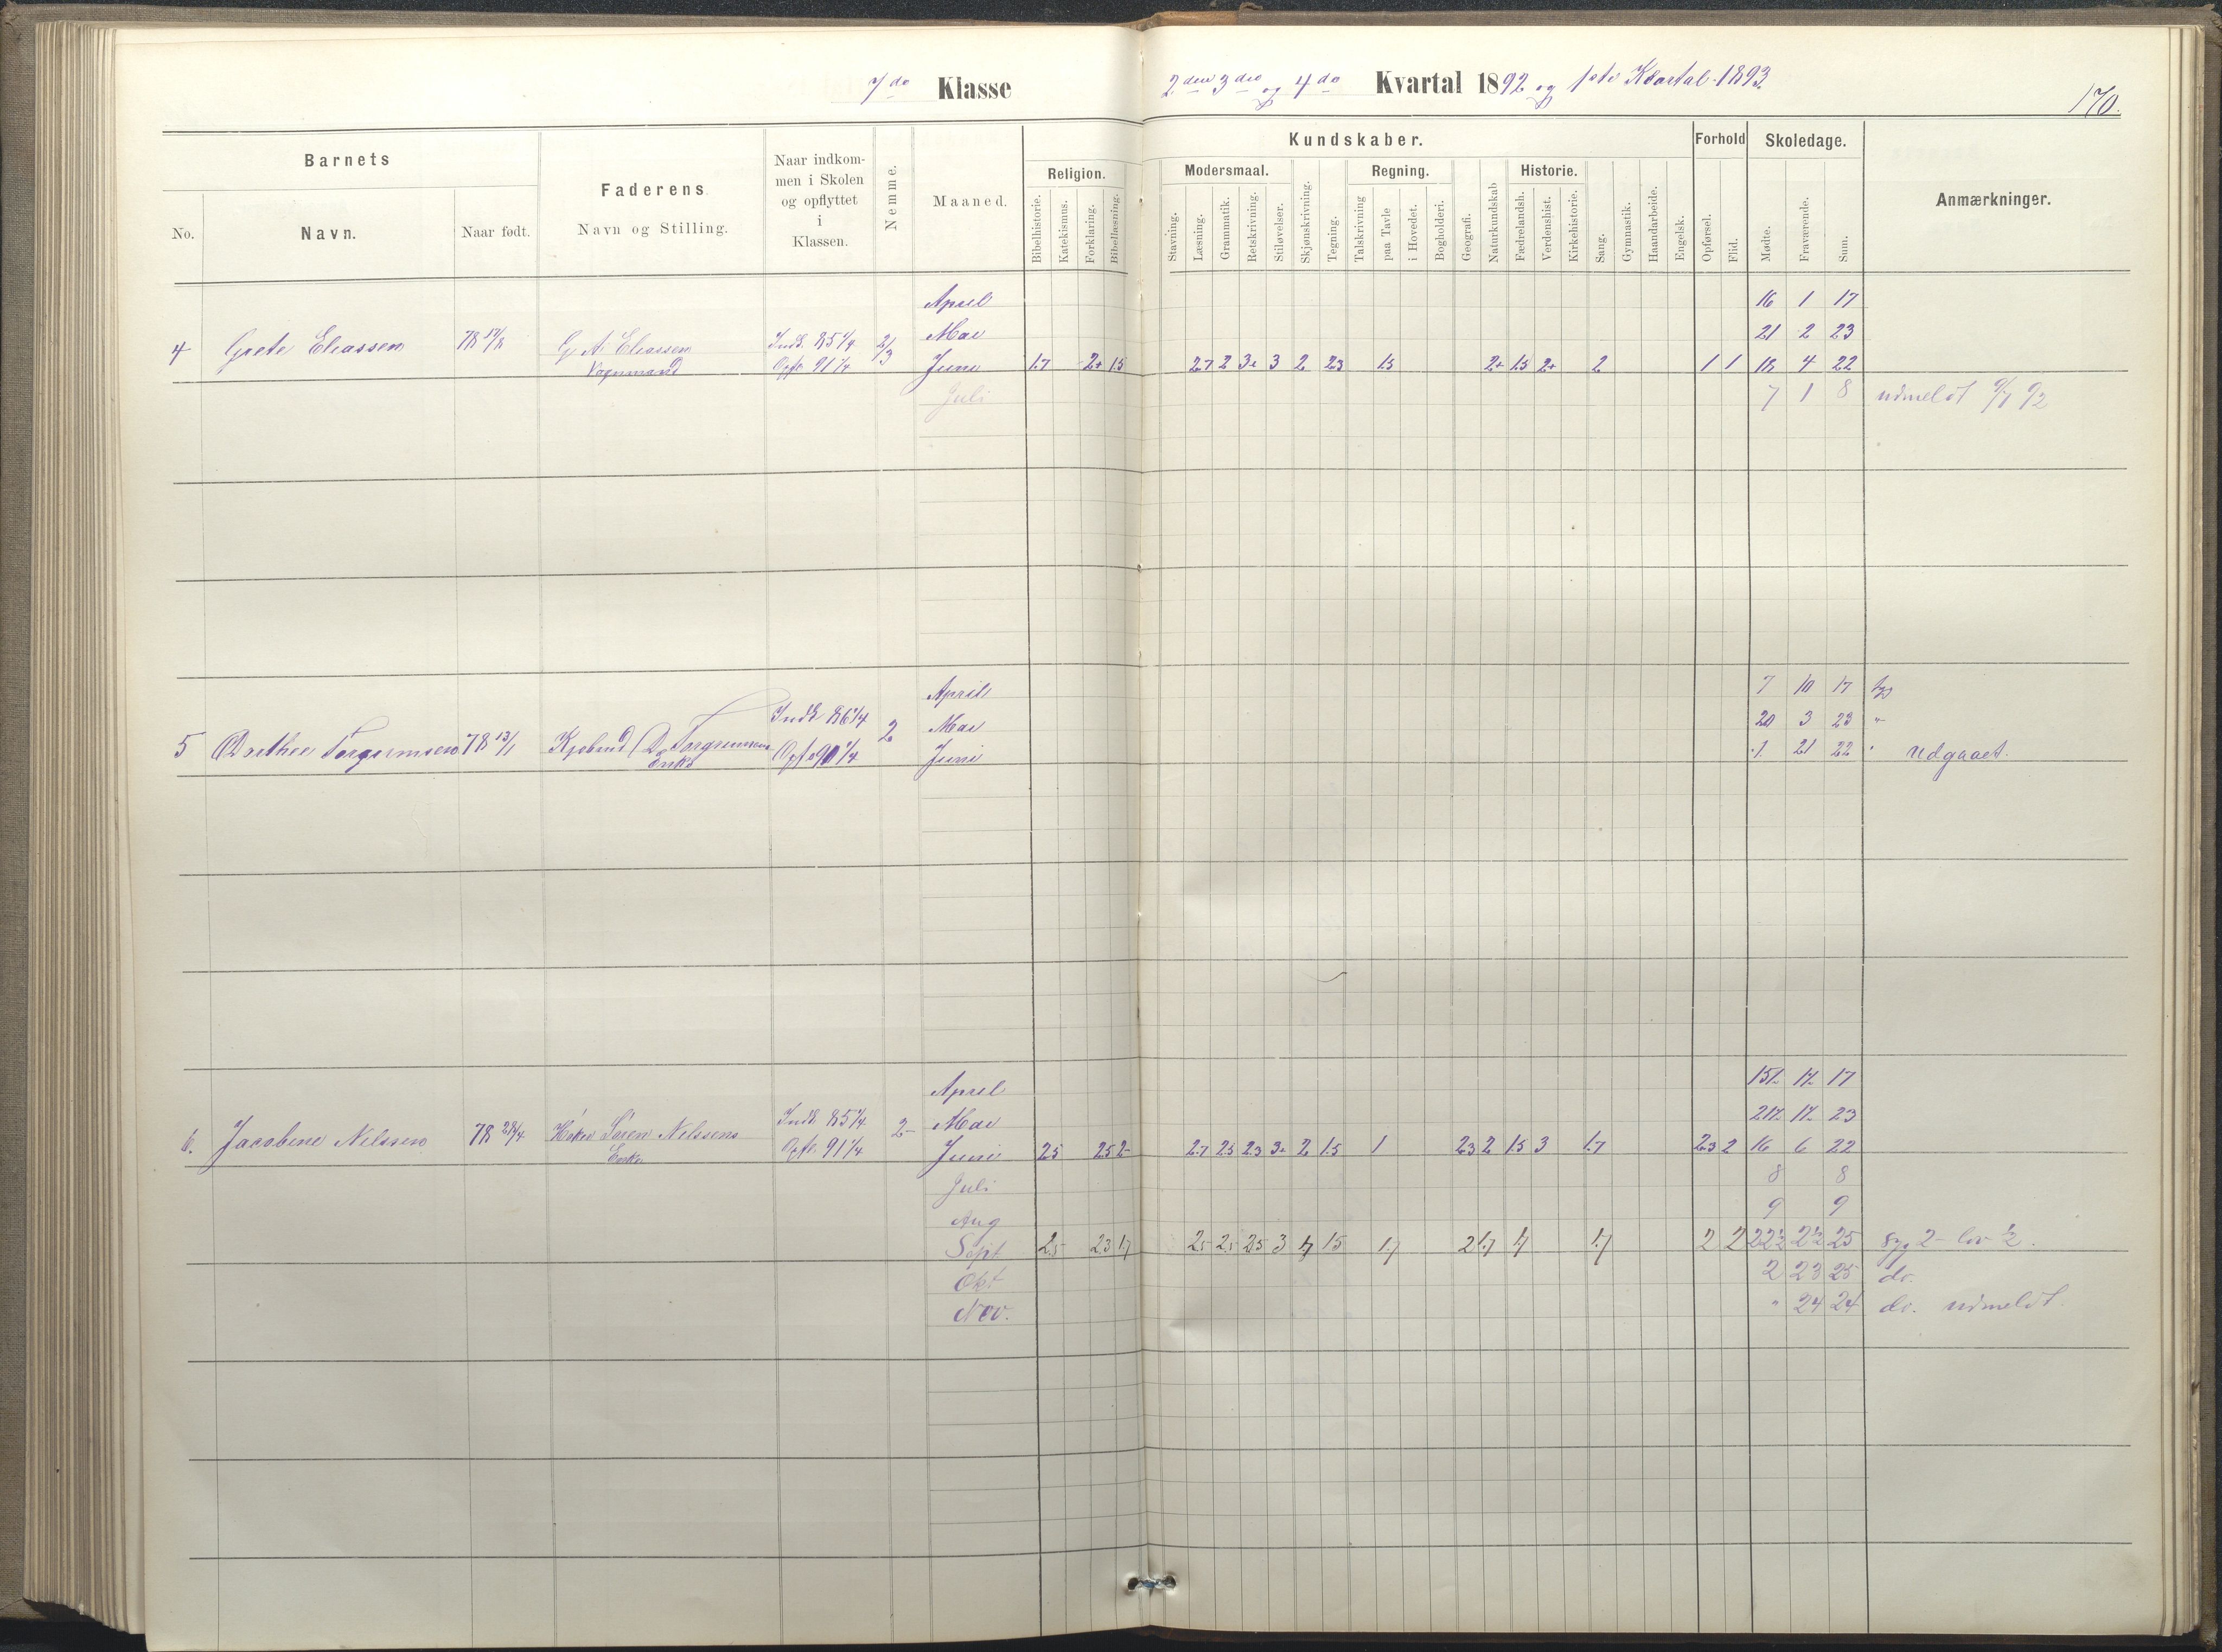 7de Klasse 2den 3die og 4de Kvartal 1892 og 1ste Kvartal 1893.
170.
Barnets
No.
Navn.
Naar født.
Faderens
Navn og Stilling.
Naar indkom-
men i Skolen
og opflyttet
i
Klassen.
Nemme.
Maaned.
Kundskaber.
Religion.
Bibelhistorie.
Katekismus.
Forklaring.
Bibellæsning.
Modersmaal.
Stavning.
Læsning.
Grammatik.
Retskrivning.
Stiløvelser.
Skjønskrivning.
Tegning.
Regning.
Talskrivning
paa Tavle
i Hovedet.
Bogholderi.
Geografi.
Naturkundskab
Historie.
Fædrelandsh.
Verdenshist.
Kirkehistorie.
Sang.
Gymnastik.
Haandarbeide.
Engelsk.
Forhold
Opførsel.
Flid.
Skoledage.
Mødte.
Fraværende.
Sum.
Anmærkninger.
April 16 1 17
Mai 21 2 23
4 Grete Eliassen G. A. Eliassen Indk. 85 1/4 2/3
Vognmand Opfl. 91 1/4 Juni 1.7 2+ 1.5 2.7 2 3+ 3 2 2.3 1.5 2+ 1.5 2+ 2 1 1 18 4 22
Juli 7 1 8 udmeldt 9/7 92
April 7 10 17 syg
Indk 86 1/4 Mai 20 3 23 "
5 Dorthea Torgrimsen 78 13/1 Kjøbmd D. Torgrimsens 2
Enke Opfl. 91 1/4 Juni 1 21 22 " udgaaet.
April 15½ 1½ 17
Indk 85 1/4 Mai 21½ 1½ 23
6. Jacobine Nilssen 78 28/4 Høker Søren Nilssens 2-
Enke Opfl. 91 1/4 Juni 2.5 2.5 2- 2.7 2.5 2.3 3+ 2 1.5 1 2.3 2 1.5 3 1.7 2.3 2 16 6 22
Juli 8 8
Aug 9 9
Sept 2.5 2.3 1.7 2.5 2.5 2.5 3 1.7 1.5 1.7 2 1.7 1.7 1.7 2 2 22½ 2½ 25 syg 2 - lov ½.
Okt 2 23 25 do.
Nov. " 24 24 do. udmeldt.